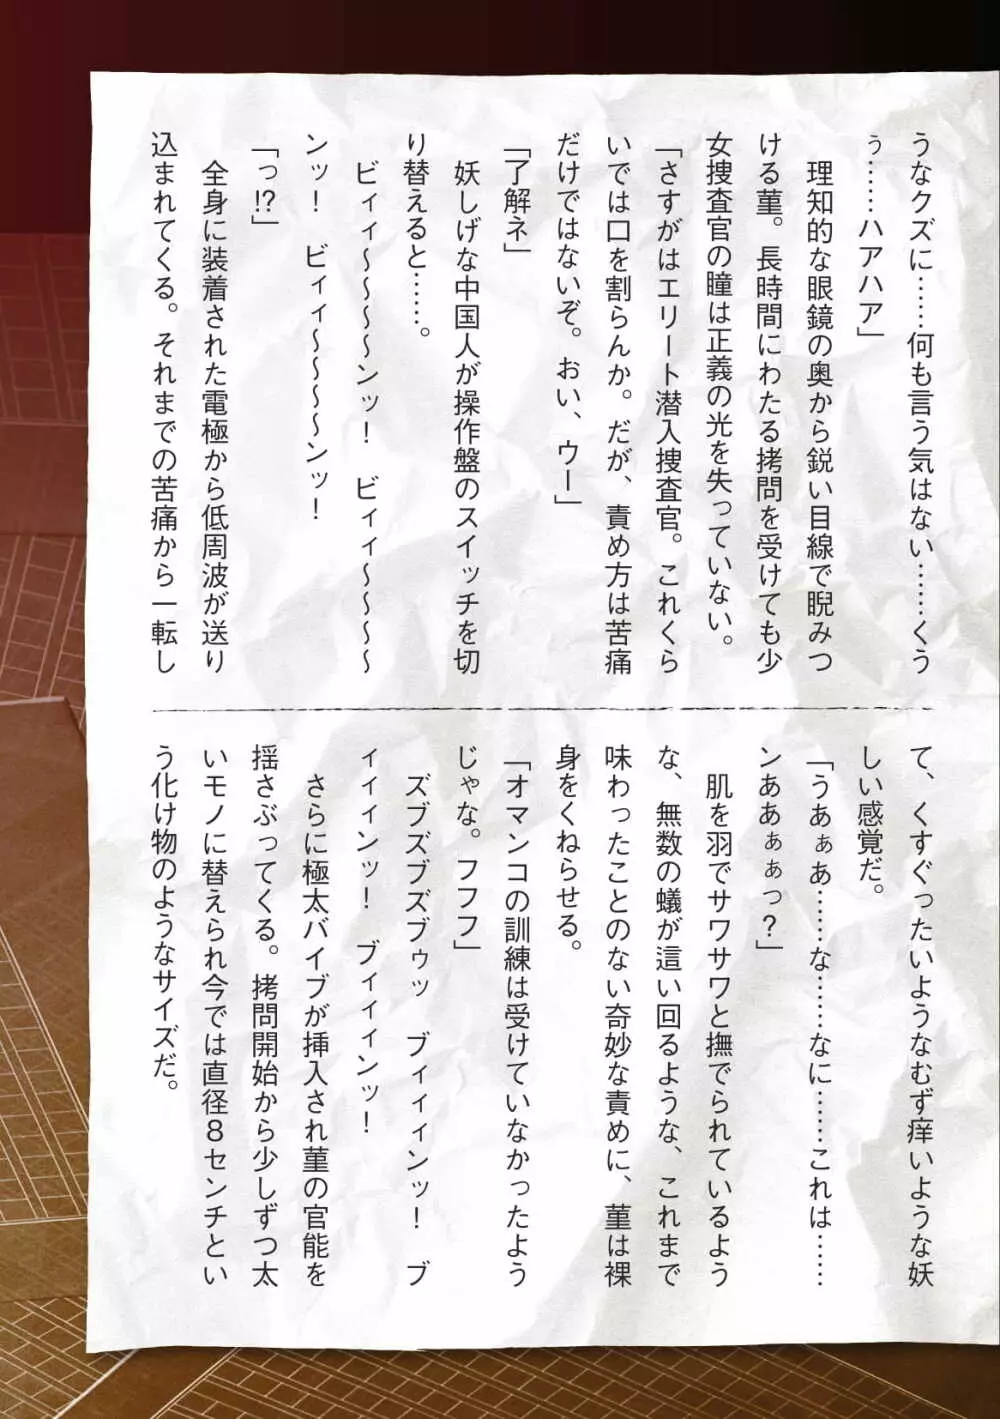 うなクズに……何も言う気はない……くう
ぅ……ハアハア」
　理知的な眼鏡の奥から鋭い目線で睨みつ
ける菫。長時間にわたる拷問を受けても少
女捜査官の瞳は正義の光を失っていない。
「さすがはエリート潜入捜査官。これくら
いでは口を割らんか。だが、責め方は苦痛
だけではないぞ。おい、ウー」
「了解ネ」
　妖しげな中国人が操作盤のスイッチを切
り替えると……。
　ビィィ～～～～ンッ！　ビィィ～～～～
ンッ！　ビィィ～～～～ンッ！
「っ!?」
　全身に装着された電極から低周波が送り
込まれてくる。それまでの苦痛から一転し
て、くすぐったいようなむず痒いような妖
しい感覚だ。
「うあぁあ……な……なに……これは……
ンああぁぁっ？」
　肌を羽でサワサワと撫でられているよう
な、無数の蟻が這い回るような、これまで
味わったことのない奇妙な責めに、菫は裸
身をくねらせる。
「オマンコの訓練は受けていなかったよう
じゃな。フフフ」
　ズブズブズブゥッ　ブィィィンッ！　ブ
ィィィンッ！　ブィィィンッ！
　さらに極太バイブが挿入され菫の官能を
揺さぶってくる。拷問開始から少しずつ太
いモノに替えられ今では直径８センチとい
う化け物のようなサイズだ。